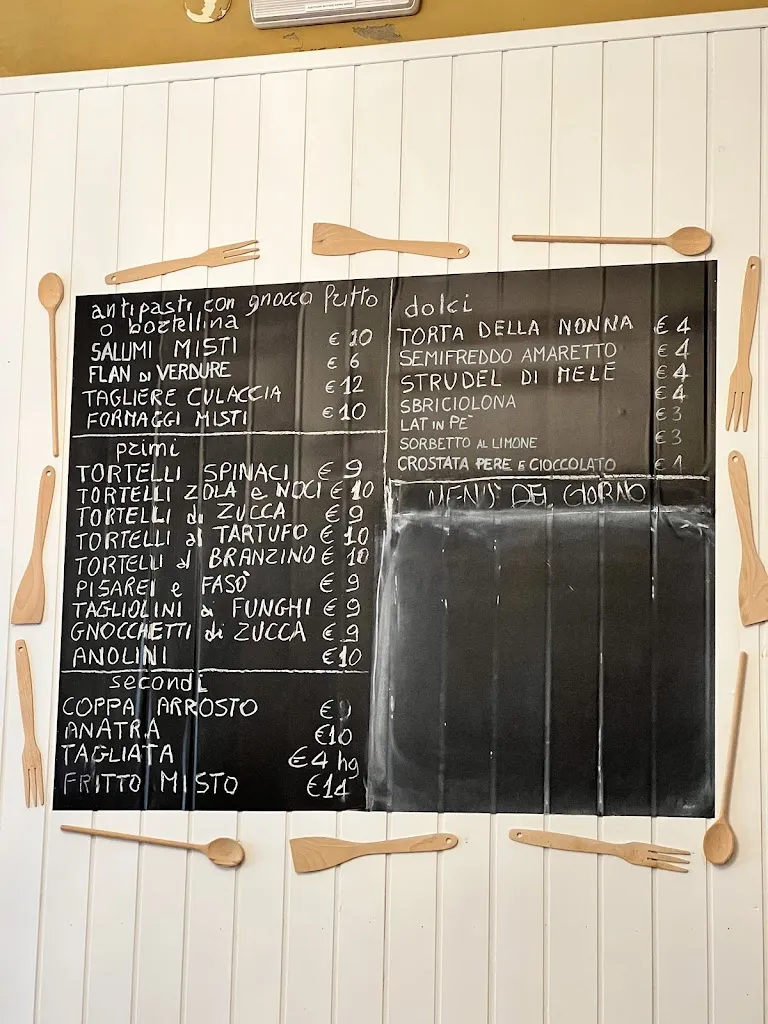 antipasti con gnocco fritto
o bortellina
SALUMI MISTI € 10
FLAN DI VERDURE € 6
TAGLIERE CULACCIA € 12
FORMAGGI MISTI € 10
primi
TORTELLI SPINACI € 9
TORTELLI ZOLA e NOCI € 10
TORTELLI di ZUCCA € 9
TORTELLI al TARTUFO € 10
TORTELLI di BRANZINO € 10
PISAREI e FASÒ € 9
TAGLIOLINI ai FUNGHI € 9
GNOCCHETTI di ZUCCA € 9
ANOLINI €10
secondi
COPPA ARROSTO €
ANATRA €10
TAGLIATA €4 hg
FRITTO MISTO €14
dolci
TORTA DELLA NONNA € 4
SEMIFREDDO AMARETTO € 4
STRUDEL DI MELE € 4
SBRICIOLONA € 4
LAT IN PE' € 3
SORBETTO AL LIMONE € 3
CROSTATA PERE E CIOCCOLATO € 4
MENÙ DEL GIORNO